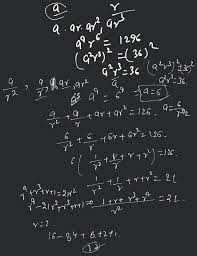 a r
a, ar, ar², ar³
a⁴r⁶ = 1296
(a²r³)² = (36)²
a²r³ = 36
(a²r³)² = (36)²
a²r³ = 36
a/r², a/r, ar, ar²
a⁴ = 6⁴
a = 6
a/r² + a/r + ar + ar² = 126
6/r² + 6/r + 6r + 6r² = 126
6(1/r² + 1/r + r + r²) = 126
1/r² + 1/r + r + r² = 21
r⁴ + r³ + r + 1 = 21r²
r⁴ - 21r² + r³ + r + 1 = 0
1 + r + r³ + r⁴ / r² = 21
r = 2
16 - 84 + 8 + 2 + 1